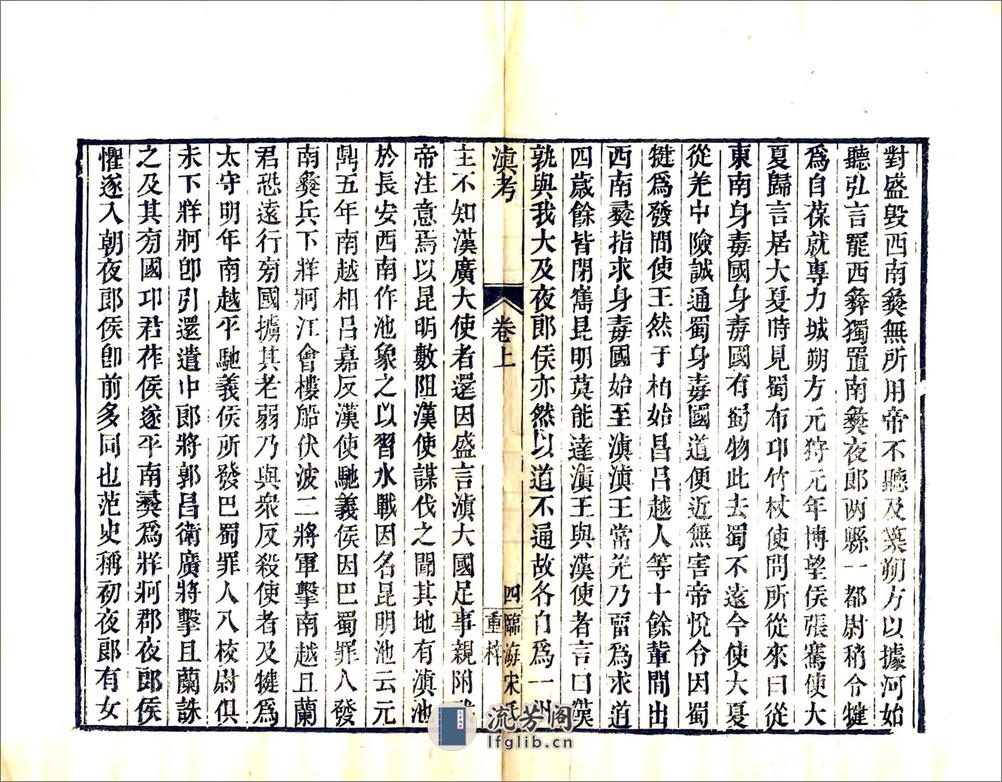 對盛毀西南彝無所用帝不聽及築朔方以據河始
聽弘言罷西彝獨置南彝夜郎两縣一都尉稍令犍
為自葆就專力城朔方元狩元年博望侯張騫使大
夏歸言居大夏時見蜀布邛竹杖使問所從來曰從
東南身毒國身毒國有蜀物此去蜀不遠今使大夏
從羌中險誠通蜀身毒國道便近無害帝悅令因蜀
犍為發間使王然于柏始昌呂越人等十餘輩間出
西南彝指求身毒國始至滇滇王常羌乃畱為求道
四歲餘皆閉巂昆明莫能達滇王與漢使者言曰漢
孰與我大及夜郎侯亦然以道不通故各自為一州
滇考
卷上
四
臨海宋氏
重梓
主不知漢廣大使者還因盛言滇大國足事親附
帝注意焉以昆明數阻漢使謀伐之聞其地有滇池
於長安西南作池象之以習水戰因名昆明池云元
鼎五年南越相呂嘉反漢使馳義侯因巴蜀罪人發
南彝兵下牂牁江會樓船伏波二將軍擊南越且蘭
君恐遠行旁國擄其老弱乃與衆反殺使者及犍為
太守明年南越平馳義侯所發巴蜀罪人八校尉俱
未下牂牁卽引還遣中郎將郭昌衛廣將擊且蘭誅
之及其旁國邛君筰侯遂平南彝為牂牁郡夜郎侯
懼遂入朝夜郎侯卽前多同也范史稱初夜郎有女
流芳阁
lfglib.cn